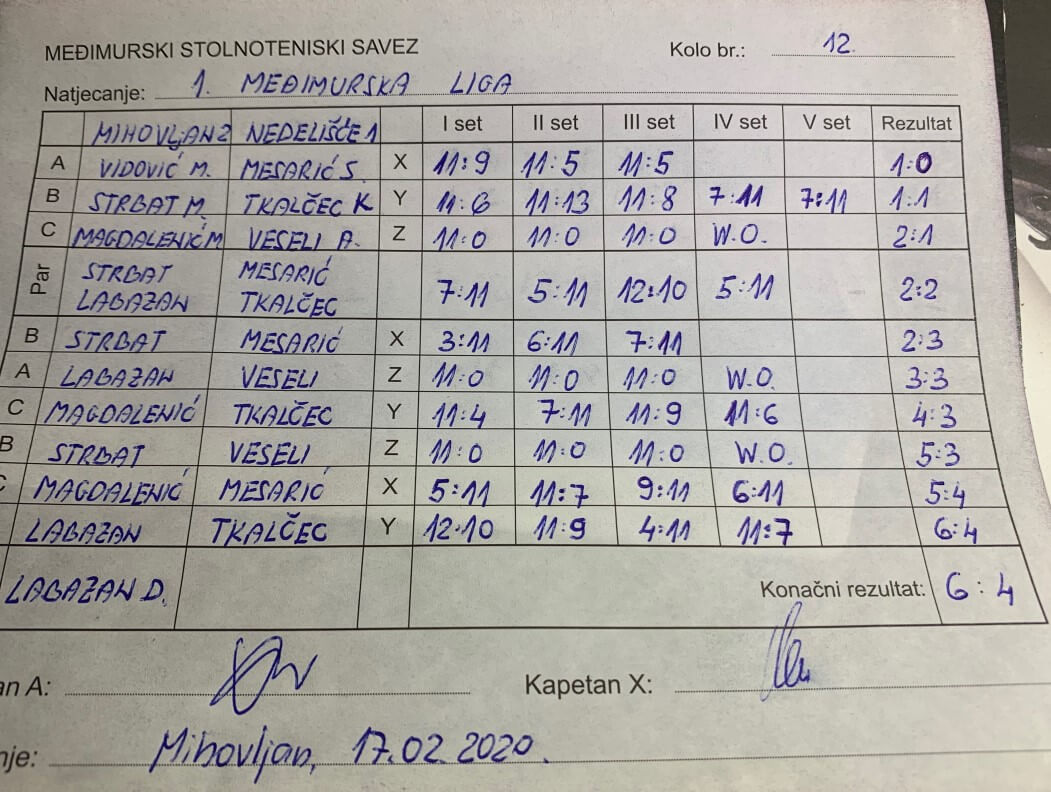 MEĐIMURSKI STOLNOTENISKI SAVEZ Kolo br.: 12.
Natjecanje: 1. MEĐIMURSKA LIGA
MIHOVLJAN 2 NEDELIŠĆE 1 I set II set III set IV set V set Rezultat
A VIDOVIĆ M. MESARIĆ S. X 11:9 11:5 11:5 1:0
B STRBAT M. TKALČEC K Y 11:6 11:13 11:8 7:11 7:11 1:1
C MAGDALENIĆ M VESELI A. Z 11:0 11:0 11:0 W.O. 2:1
Par STRBAT LABAZAN MESARIĆ TKALČEC 7:11 5:11 12:10 5:11 2:2
B STRBAT MESARIĆ X 3:11 6:11 7:11 2:3
A LABAZAN VESELI Z 11:0 11:0 11:0 W.O. 3:3
C MAGDALENIĆ TKALČEC Y 11:4 7:11 11:9 11:6 4:3
B STRBAT VESELI Z 11:0 11:0 11:0 W.O. 5:3
C MAGDALENIĆ MESARIĆ X 5:11 11:7 9:11 6:11 5:4
LABAZAN TKALČEC Y 12:10 11:9 4:11 11:7 6:4
LABAZAN D. Konačni rezultat: 6:4
an A: Kapetan X:
nje: Mihovljan, 17.02.2020.